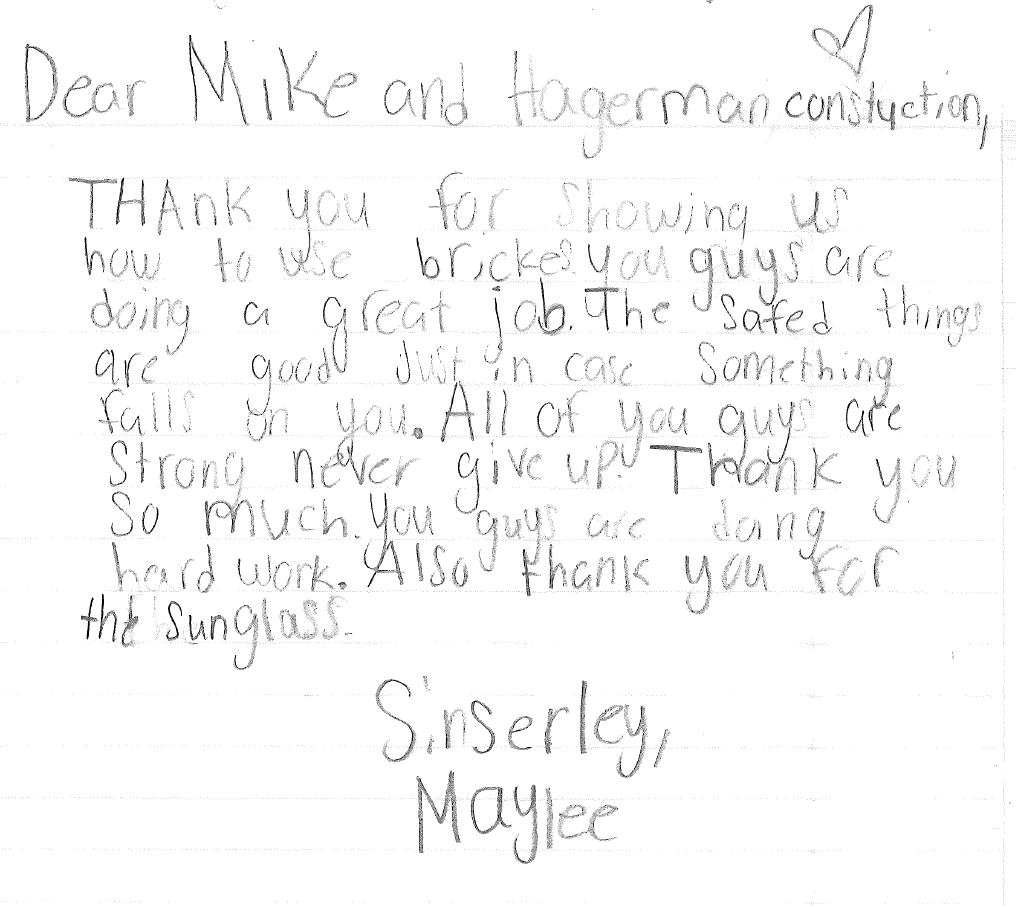 Dear Mike and Hagerman constyction,
THAnk you for showing us
how to use brickes. you guys are
doing a great job. The safed things
are good Just in case something
falls on you. All of you guys are
Strong never give up! Thank you
So much. you guys are doing
hard work. Also thank you for
the sunglass.
Sinserley,
Maylee